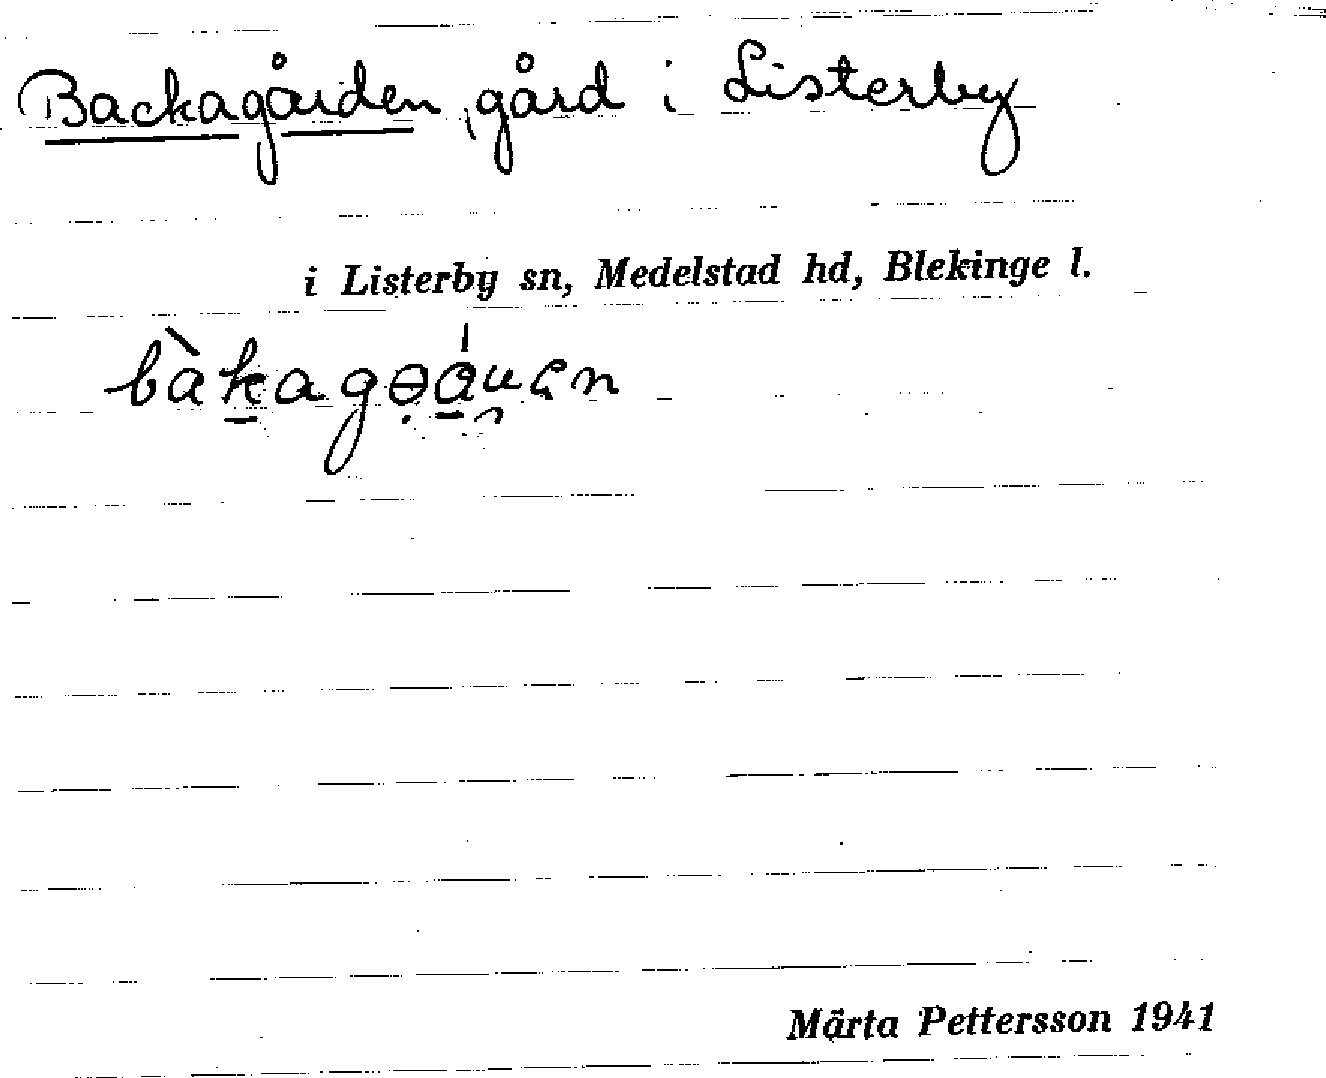 Backagården, gård i Listerby
i Listerby sn, Medelstad hd, Blekinge l.
Märta Pettersson 1941